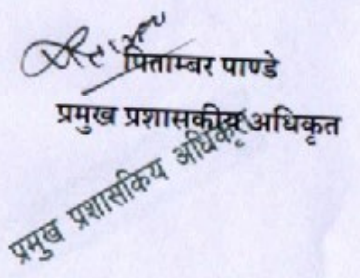 पिताम्बर पाण्डे
प्रमुख प्रशासकीय अधिकृत
प्रमुख प्रशासकिय अधिकृत